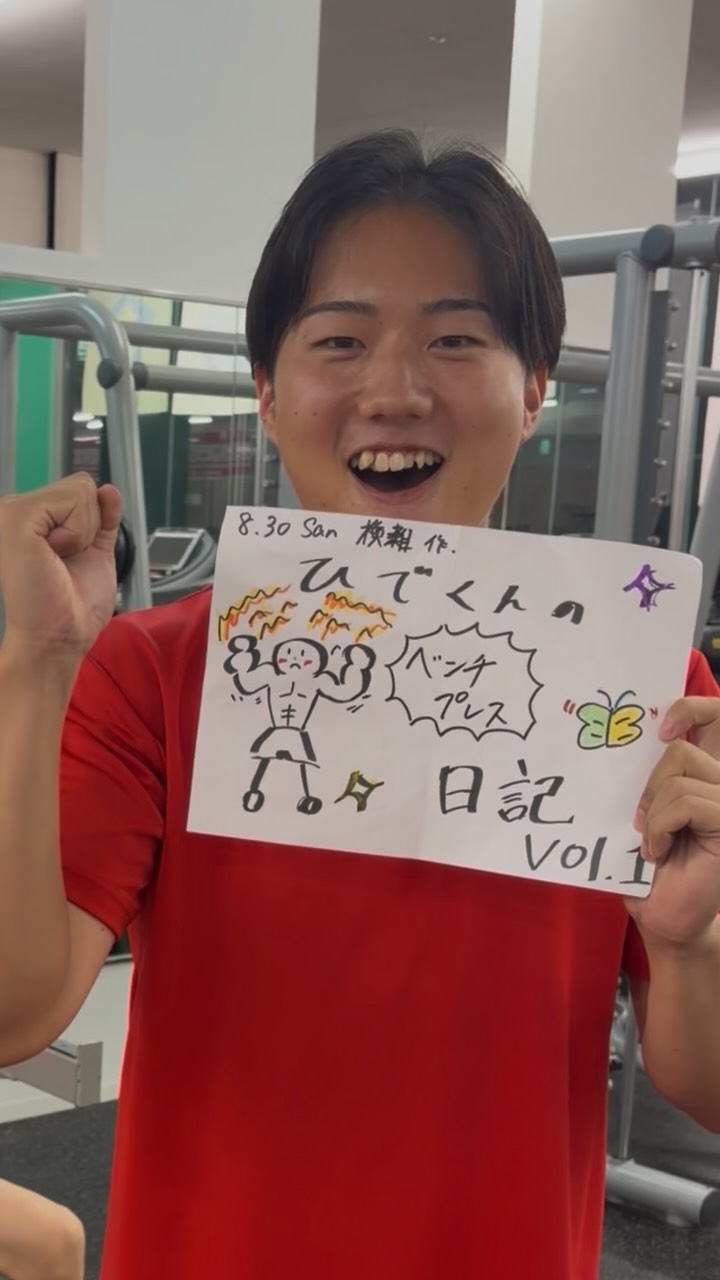 8.30 San 作.
ひでくんの
ベンチ
プレス
日記
Vol.1